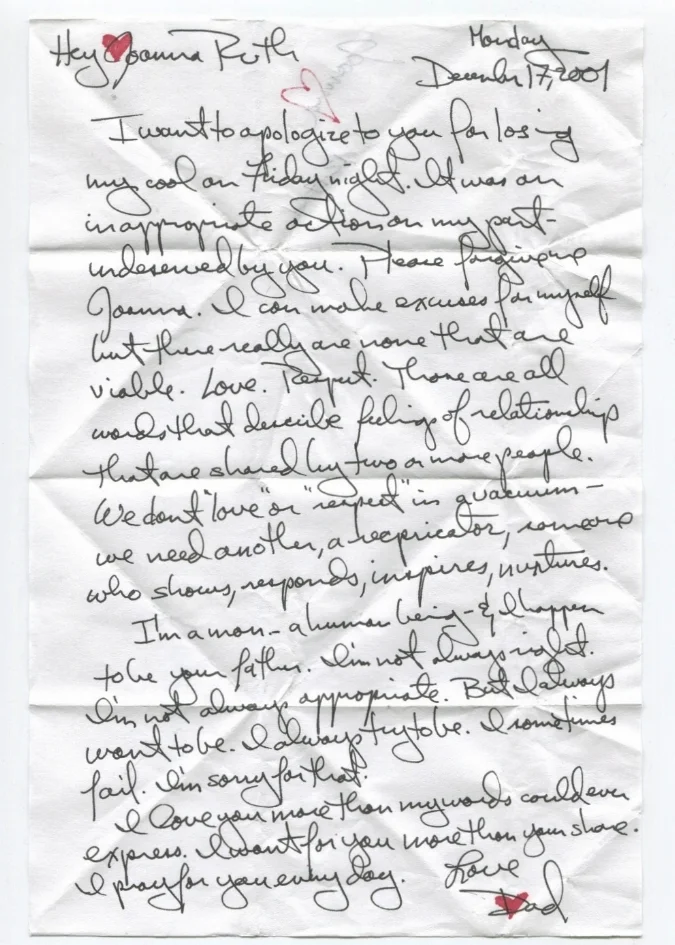 Hey Joanna Ruth
Monday
December 17, 2001
I want to apologize to you for losing
my cool on Friday night. It was an
inappropriate action on my part-
undeserved by you. Please forgive me
Joanna. I can make excuses for myself
but there really are none that are
viable. Love. Respect. Those are all
words that describe feelings of relationship
that are shared by two or more people.
We don't "love" or "respect" in a vacuum-
we need another, a recipricator, someone
who shows, responds, inspires, nurtures.
I'm a man - a human being - & I happen
to be your father. I'm not always right.
I'm not always appropriate. But I always
want to be. I always try to be. I sometimes
fail. I'm sorry for that.
I love you more than my words could ever
express. I want for you more than your share.
I pray for you every day.
Love
Dad